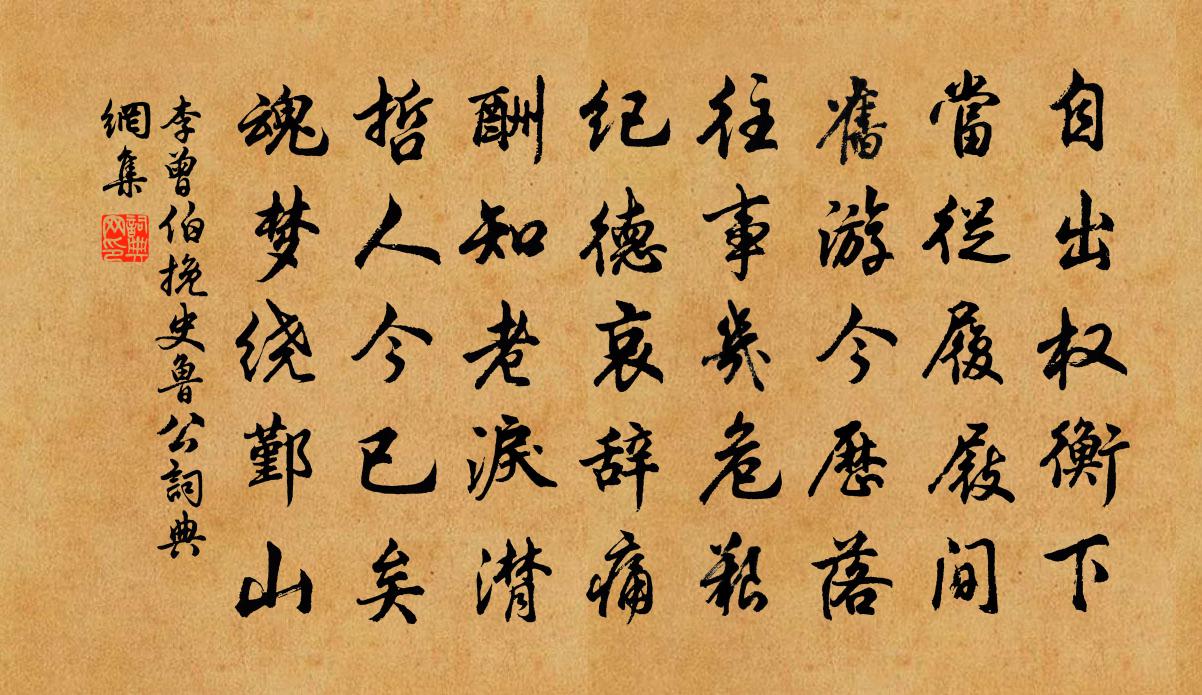 自出权衡下
當従履屐間
舊游今歷落
往事幾危艱
纪德哀辞痛
酬知老淚潸
哲人今已矣
魂梦绕鄞山
李曾伯挽史魯公詞典
網集
詞典
网印